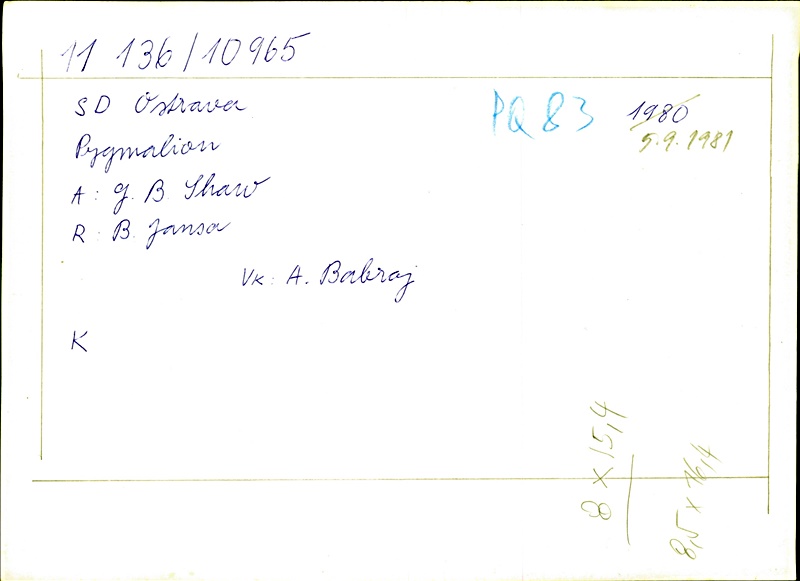 11 136/10965
SD Ostrava
PQ 83
1980
5.9.1981
Pygmalion
A: G. B. Shaw
R: B. Jansa
Vk: A. Babraj
K
8 x 15,4
8,5 x 16,4